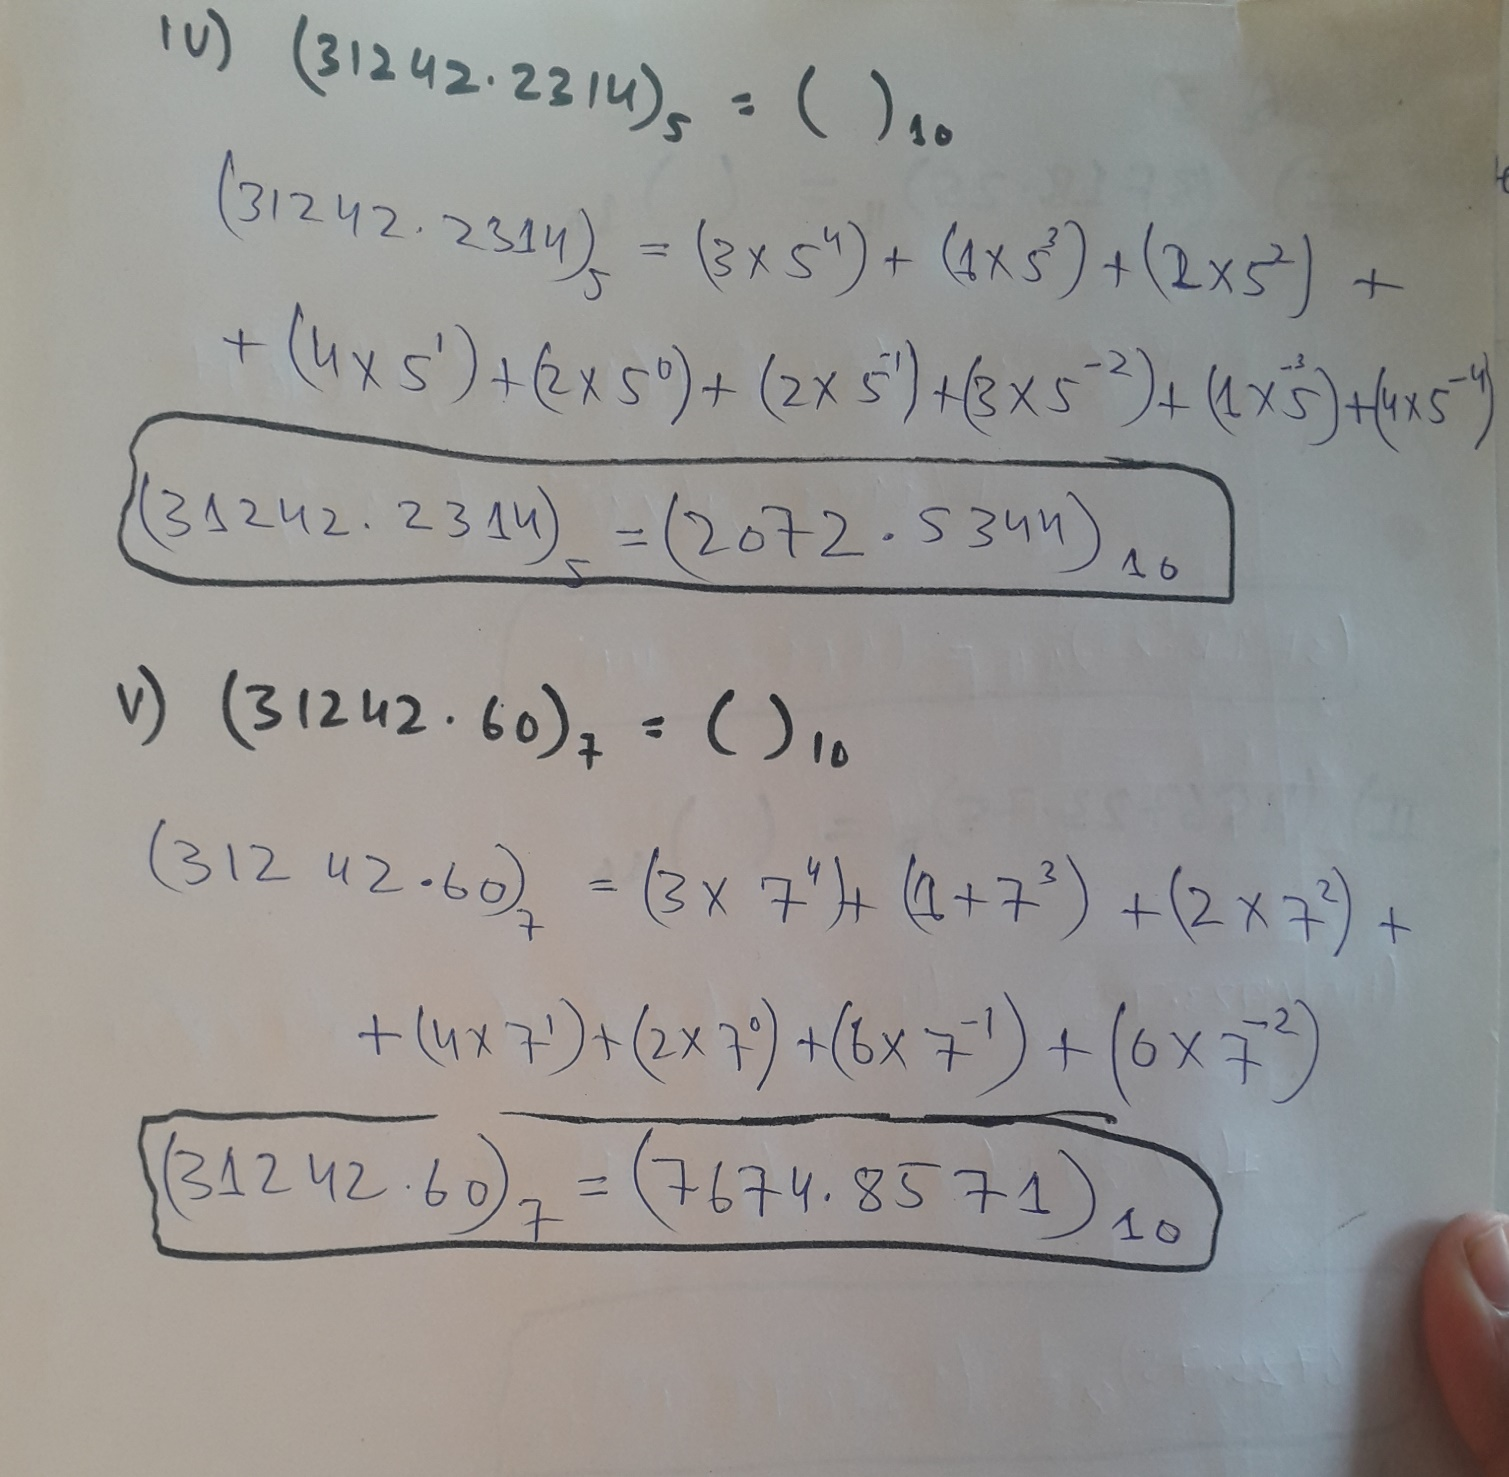 IV) (31242.2314)₅ = ( )₁₀
(31242.2314)₅ = (3×5⁴) + (1×5³) + (2×5²) +
+ (4×5¹) + (2×5⁰) + (2×5⁻¹) + (3×5⁻²) + (1×⁻³5) + (4×5⁻⁴)
(31242.2314)₅ = (2072.5344)₁₀
V) (31242.60)₇ = ( )₁₀
(31242.60)₇ = (3×7⁴) + (1+7³) + (2×7²) +
+ (4×7¹) + (2×7⁰) + (6×7⁻¹) + (0×7⁻²)
(31242.60)₇ = (7674.8571)₁₀